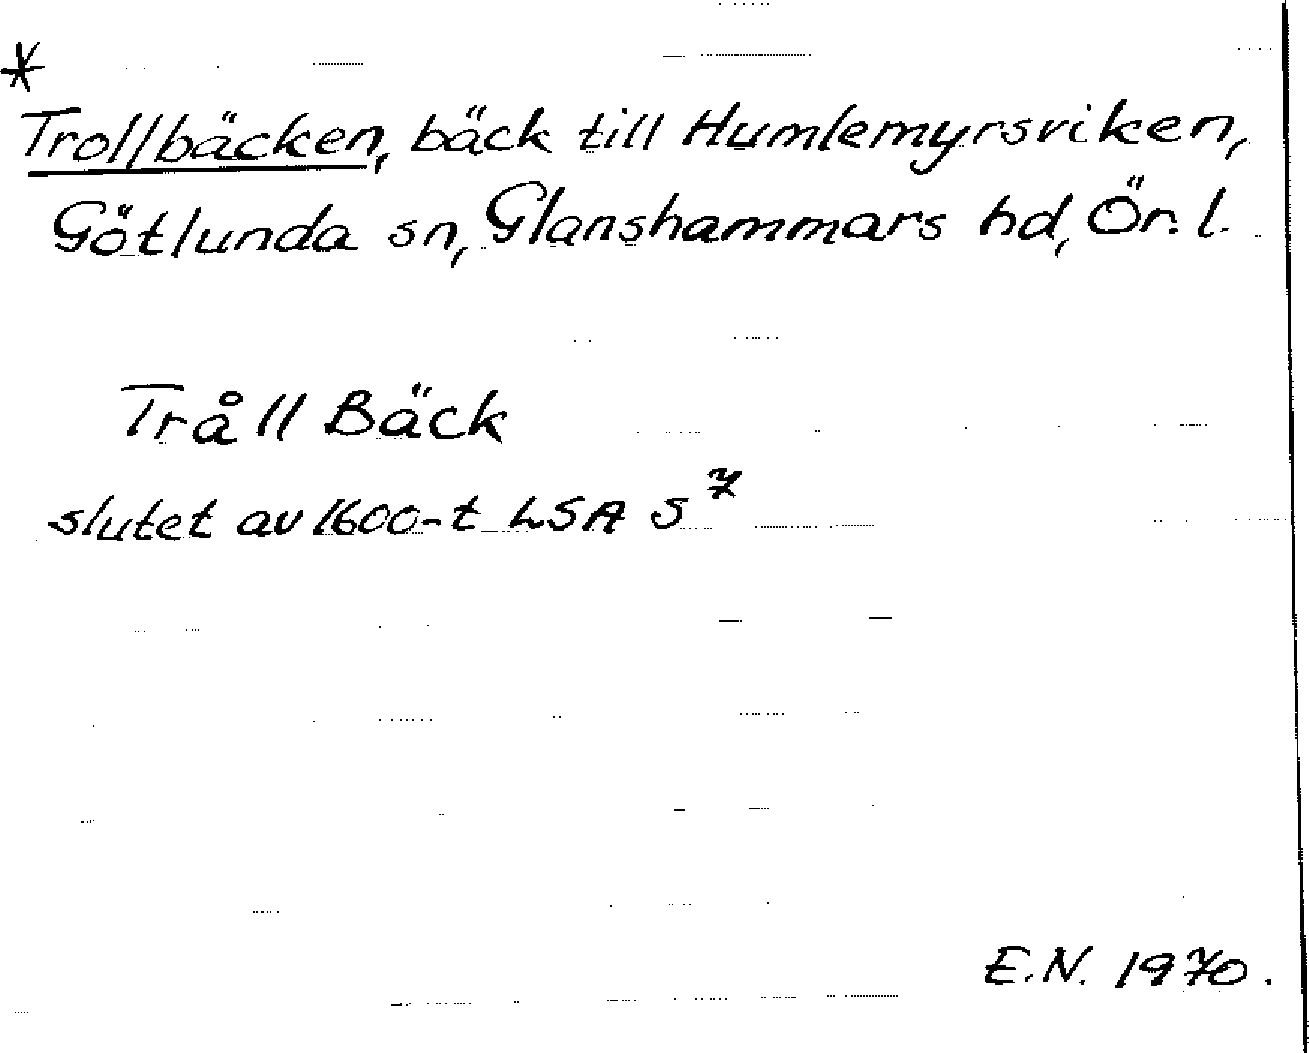 *
Trollbäcken, bäck till Humlemyrsviken,
Götlunda sn, Glanshammars hd, Ör. l.
Tråll Bäck
slutet av 1600-t LSA S⁷
E.N. 1970.